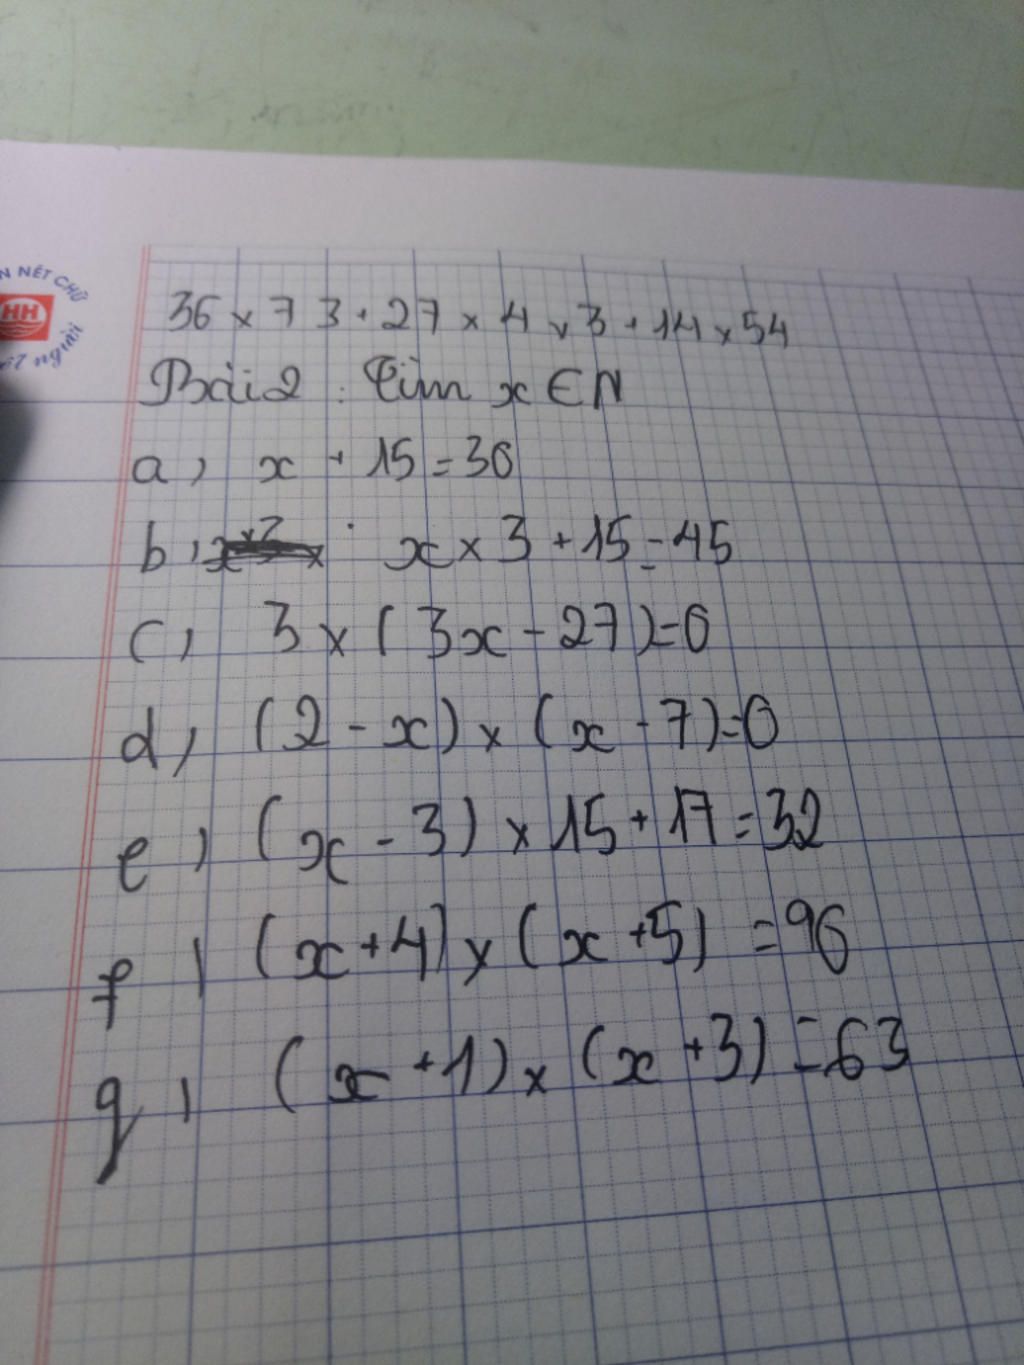 N NÉT CHỮ
HH
ết người
36 x 73 + 27 x 4 x 3 + 14 x 54
Bài 2 : Tìm x ∈ N
a, x + 15 = 36
b, x x 3 + 15 = 45
c, 3 x ( 3x - 27 ) = 0
d, ( 2 - x ) x ( x - 7 ) = 0
e, ( x - 3 ) x 15 + 17 = 32
f, ( x + 4 ) x ( x + 5 ) = 96
g, ( x + 1 ) x ( x + 3 ) = 63